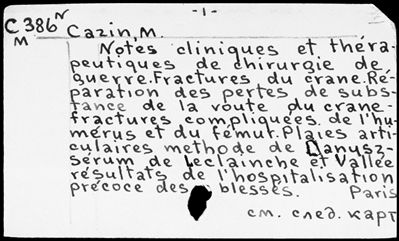 -1-
C 386 N
M
Cazin, M.
Notes cliniques et théra-
peutiques de chirurgie de
guerre. Fractures du crane. Ré-
paration des pertes de subs-
tance de la voute du crane-
fractures compliquées de l'hu-
mérus et du fémur. Plaies arti-
culaires methode de Danysz-
sérum de Leclainche et Vallée
résultats de l'hospitalisation
précoce des blesses. Paris
см. след. карт